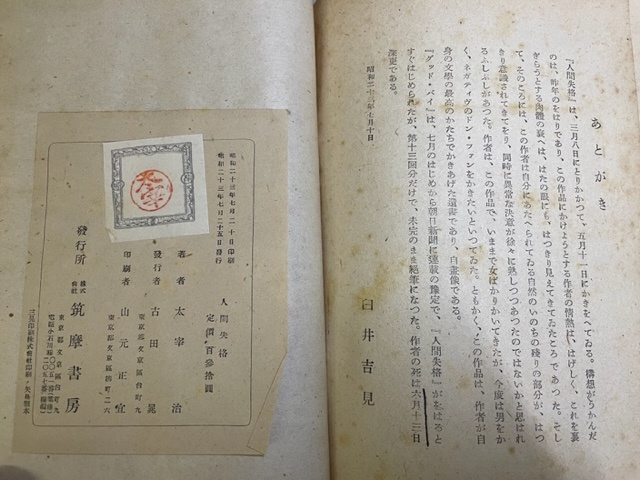 あとがき
『人間失格』は、三月八日にとりかかつて、五月十一日にかきをへてゐる。構想がうかんだ
のは、昨年のをはりであり、この作品にかけようとする作者の情熱は、はげしく、これを裏
ぎらうとする肉體の衰へは、はたの眼にも、はつきり見えてきてゐたころであつた。そし
て、そのころには、この作者は自分にあたへられてゐる自然のいのちの殘りの部分が、はつ
きり意識されてきてをり、同時に異常な決意が徐々に熟しつつあつたのではないかと思はれ
るふしぶしがあつた。作者は、この作品で、いままで女ばかりかいてきたが、今度は男をか
く、ネガティヴのドン・ファンをかきたいといつてゐた。ともかく、この作品は、作者が自
身の文學の最高のかたちでかきあげた遺書であり、自畫像である。
『グッド・バイ』は、七月のはじめから朝日新聞に連載の豫定で、『人間失格』がをはると
すぐはじめられたが、第十三囘分だけで、未完のまま絕筆になつた。作者の死は六月十三日
深更である。
昭和二十三年七月十日
臼井吉見
昭和二十三年七月二十日印刷
昭和二十三年七月二十五日發行
人間失格
定價 百參拾圓
著者 太宰治
發行者 古田晁
東京都文京區台町九
印刷者 山元正宜
東京都文京區
町二六
發行所 株式會社 筑摩書房
東京都文京區台町九
三晃印刷株式會社印刷・矢島製本